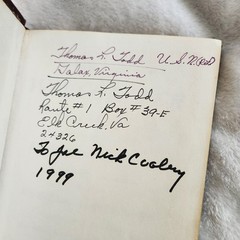 Thomas L. Todd U.S.N. (Ret)
Galax, Virginia
Thomas L. Todd
Route #1 Box #39-E
Elk Creek, Va
24326
To Joe Nick Cooley
1999